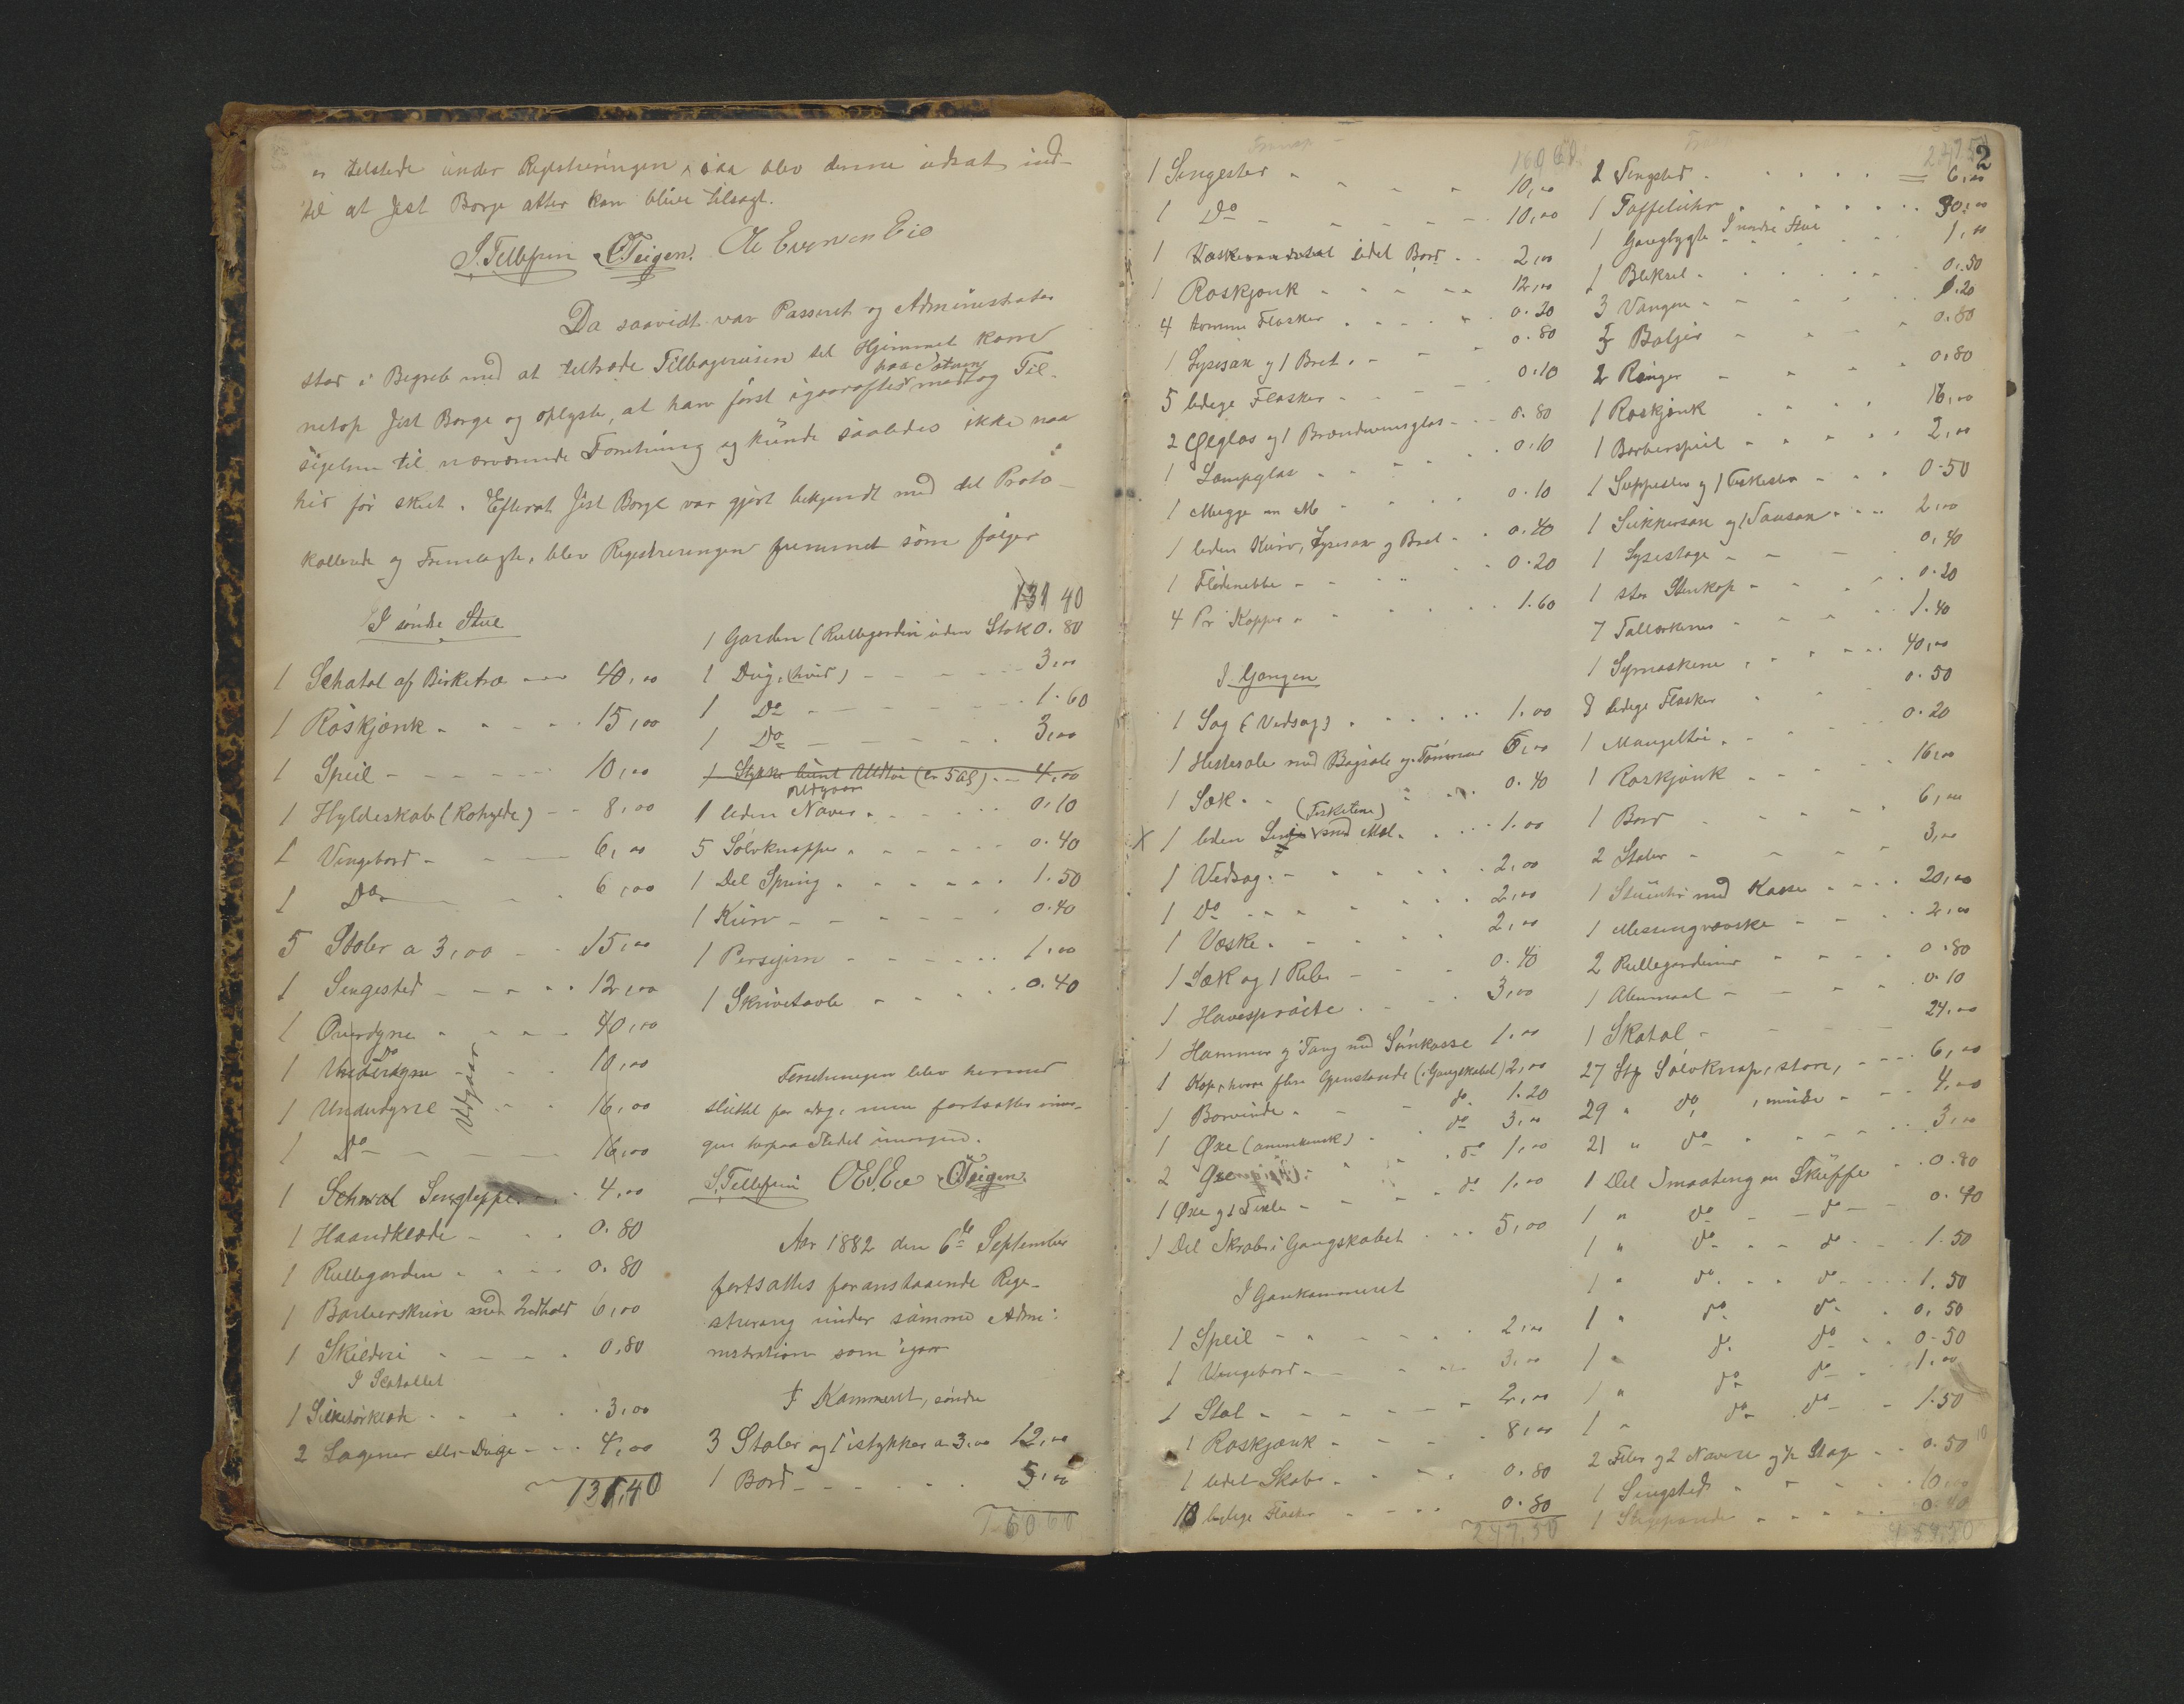 er tilstede under Registreringen, saa blev denne udsat ind-
til at Jist Borge atter kan blive tilsagt.
S. Tellefsen OTeigen. Ole Evensen Eie
Da saavidt var Passeret og Administrator
stod i Begreb med at tiltræde Tilbagereisen til Hjemmet kom
netop Jist Borge og oplyste, at han først igaaraftes modtog Til-
sigelsen til nærværende Forretning og kunde saaledes ikke naa
hid før skeet. Efterat Jist Borge var gjort bekjendt med det Proto-
kollerede og Fremlagte, blev Registreringen fremmet som følger
I søndre Stue
1 Schatol af Birketræ 40,00
1 Roskjønk 15,00
1 Speil 10,00
1 Hyldeskab (Rohylde) 8,00
1 Vingebord 6,00
1 Do 6,00
5 Stoler a 3,00 15,00
1 Sengested 12,00
1 Overdyne 40,00
1 Do 10,00
1 Underdyne 16,00
1 Do 16,00
Udgaar
1 Sengteppe 4,00
1 Haandklæde 0.80
1 Rullegarden 0.80
1 Barberskrin med Indhold 6,00
1 Skilderi 0,80
I Scatollet
1 Silketørklæde 3,00
2 Lagener eller Duge 4,00
131,40
131 40
1 Garden (Rullegardin uden Stok 0.80
1 Dug, (hvid) 3,00
1 Do 1.60
1 Do 3,00
1 Stykke 4,00
Udgaar
1 liden Naver 0,10
5 Sølvknapper 0.40
1 Del Spring 1.50
1 Kurv 0.40
1 1,00
1 Skrivetavle 0.40
Forretningen blev hermed
sluttet for idag, men fortsættes
gen herpaa Stedet imorgen.
S. Tellefsen OTeigen.
Aar 1882 den 6te September
fortsattes foranstaaende Regi-
strering under samme Admi-
nistration som igaar
I Kammeret, søndre
3 Stoler og 1 istykker a 3,00 12,00
1 Bord 5,00
160 60
160 60.
1 Sengested 10,00
1 Do 10,00
1 lidet Bord 2,00
1 Roskjønk 12,00
4 tomme Flasker 0.20
1 Lysesax og 1 Bret 0.80
5 ledige Flasker 0.10
2 Ølglas og 1 Brændevinsglas 0.80
1 Lampeglas 0.10
1 Mugge 0.10
1 liden Kurv, Lysesax og Bret 0.40
1 Flødenebbe 0.20
4 Pr Kopper 1.60
I Gangen
1 Sag (Vedsag) 1.00
1 Hestesole med Bogsole og Tømmer 6,00
1 Sæk 0.40
(Fisketene)
X 1 liden 1.00
1 Vedsag 2,00
1 Do 2,00
1 Væske 2,00
1 Sæk og 1 0.40
1 Havesprøite 3,00
1 Hammer og Tang med Sømkasse 1,00
1 Kop, hvori flere Gjenstande (i Gangskabet) 2,00
1 Borvinde do 1.20
1 Øxe (amerikansk) do 3,00
2 Øxe do 1,00
1 Øxe og 1 do 1.00
1 Del Skrab i Gangskabet 5,00
I Gankammeret
1 Speil 2,00
1 Vingebord 3,00
1 Stol 2,00
1 Roskjønk 8,00
1 lidet Skab 0.80
10 ledige Flasker 0.80
247,50
2
247,50
1 Sengested 6,00
1 Taffeluhr 30,00
I nordre Stue
1 Gangbygle 1,00
1 Bliksel 0.50
3 0.20
2 Baljer 0.80
2 Ringer 0.80
1 Roskjønk 16,00
1 Barberspeil 2,00
1 Suppeslev og 1 Fiskeslev 0.50
1 Sukkersax og 1 Sausax 2,00
1 Lysestage 0,40
1 stor Stenkop 0.20
7 Tallerkener 1.40
1 Symaskine 40,00
8 ledige Flasker 0.50
1 Mangeltøi 0.20
1 Roskjønk 16,00
1 Bord 6,00
2 Stoler 3,00
1 Stueuhr med Kasse 20,00
1 2,00
2 Rullegardiner 0.80
1 Alenmaal 0.10
1 Skatol 24,00
27 Stk Sølvknap, store, 6,00
29 " do, mindre 4,00
21 " do 3,00
1 Del Smaating en Skuffe 0.80
1 " do do 0.40
1 " do do 1.50
1 " do do 1.50
1 " do do 0,50
1 " do do 0.50
1 " do do 1.00
1 " do do 1.50
2 Filer og 2 Navere og 1 Stage 0.50
1 Sengested 10,00
1 0.40
454,50